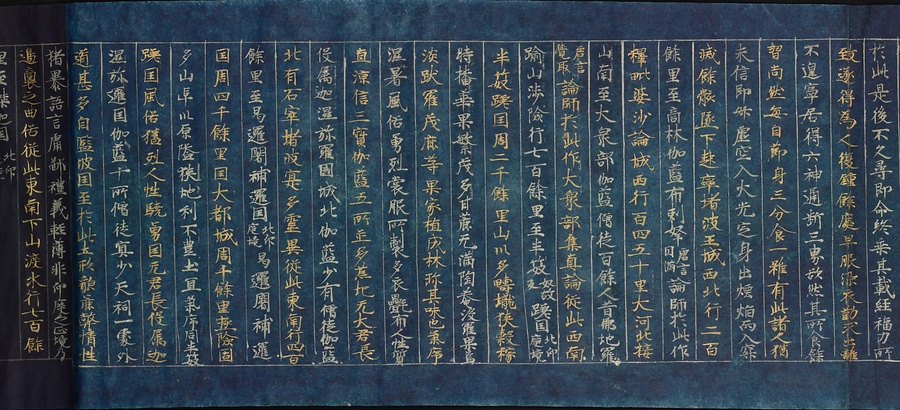 於此是後不久尋即命終乘其載經福力所
致遂得為人復鍾餘慶早服染衣勤求出離
不遑寧居得六神通斷三界欲然其所食餘
習尚然每自節身三分食一雖有此語人猶
未信即昇虛空入火光定身出煙焰而入寂
滅餘骸墜下起窣堵波王城西北行二百
餘里至商林伽藍布剌拏唐言圓滿論師於此作
釋毗婆沙論城西行百四五十里大河北接
山南至大衆部伽藍僧徒百餘人昔佛地羅
唐言覺取論師於此作大衆部集真論從此西南
踰山涉險行七百餘里至半笯奴故反蹉国北印度境
半笯蹉国周二千餘里山川多疇壠狹穀稼
時播華果繁茂多甘蔗无蒲萄菴沒羅果烏
淡跋羅茂遮等果家植成林珍其味也氣序
溫暑風俗勇烈裳服所製多衣㲲布人性質
直淳信三寶伽藍五所並多荒圮无大君長
役屬迦濕弥羅國城北伽藍少有僧徒伽藍
北有石窣堵波寔多靈異從此東南行四百
餘里至曷邏闍補邏国北印度境曷邏闍補邏
国周四千餘里国大都城周十餘里極險固
多山阜川原隘狹地利不豐土宜氣序同半笯
蹉国風俗猛烈人性驍勇国无君長役属迦
濕弥邏国伽藍十所僧徒寡少天祠一所外
道甚多自藍波国至於此土形貌麁弊情性
猥暴語言庸鄙禮義輕薄非印度之正境乃
邊裔之曲俗從此東南下山渡水行七百餘
里至磔迦国北印